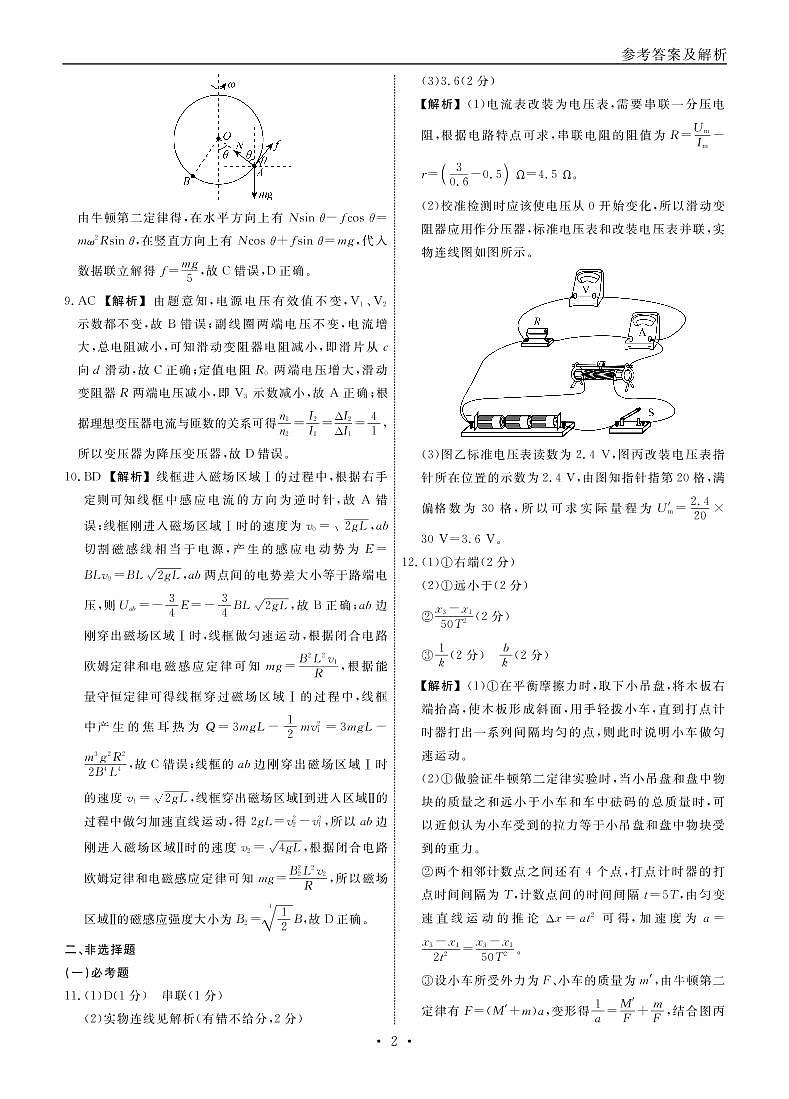 参考答案及解析
ω
O
N
f
θ
θ
θ
A
B
mg
由牛顿第二定律得,在水平方向上有 Nsin θ－fcos θ＝
mω²Rsin θ,在竖直方向上有 Ncos θ＋fsin θ＝mg,代入
数据联立解得 f＝mg/5,故 C 错误,D 正确。
9. AC 【解析】由题意知,电源电压有效值不变,V₁、V₂
示数都不变,故 B 错误;副线圈两端电压不变,电流增
大,总电阻减小,可知滑动变阻器电阻减小,即滑片从 c
向 d 滑动,故 C 正确;定值电阻 R₀ 两端电压增大,滑动
变阻器 R 两端电压减小,即 V₃ 示数减小,故 A 正确;根
据理想变压器电流与匝数的关系可得 n₁/n₂＝I₂/I₁＝ΔI₂/ΔI₁＝4/1,
所以变压器为降压变压器,故 D 错误。
10. BD 【解析】线框进入磁场区域Ⅰ的过程中,根据右手
定则可知线框中感应电流的方向为逆时针,故 A 错
误;线框刚进入磁场区域Ⅰ时的速度为 v₀＝√2gL,ab
切割磁感线相当于电源,产生的感应电动势为 E＝
BLv₀＝BL√2gL,ab 两点间的电势差大小等于路端电
压,则 Uab＝－3/4E＝－3/4BL√2gL,故 B 正确;ab 边
刚穿出磁场区域Ⅰ时,线框做匀速运动,根据闭合电路
欧姆定律和电磁感应定律可知 mg＝B²L²v₁/R,根据能
量守恒定律可得线框穿过磁场区域Ⅰ的过程中,线框
中产生的焦耳热为 Q＝3mgL－1/2mv₁²＝3mgL－
m³g²R²/2B⁴L⁴,故 C 错误;线框的 ab 边刚穿出磁场区域Ⅰ时
的速度 v₁＝√2gL,线框穿出磁场区域Ⅰ到进入区域Ⅱ的
过程中做匀加速直线运动,得 2gL＝v₂²－v₁²,所以 ab 边
刚进入磁场区域Ⅱ时的速度 v₂＝√4gL,根据闭合电路
欧姆定律和电磁感应定律可知 mg＝B₂²L²v₂/R,所以磁场
区域Ⅱ的磁感应强度大小为 B₂＝⁴√(1/2)B,故 D 正确。
二、非选择题
(一)必考题
11. (1)D(1 分) 串联(1 分)
(2)实物连线见解析(有错不给分,2 分)
(3)3.6(2 分)
【解析】(1)电流表改装为电压表,需要串联一分压电
阻,根据电路特点可求,串联电阻的阻值为 R＝Um/Im－
r＝(3/0.6－0.5) Ω＝4.5 Ω。
(2)校准检测时应该使电压从 0 开始变化,所以滑动变
阻器应用作分压器,标准电压表和改装电压表并联,实
物连线图如图所示。
V
R
A
S
(3)图乙标准电压表读数为 2.4 V,图丙改装电压表指
针所在位置的示数为 2.4 V,由图知指针指第 20 格,满
偏格数为 30 格,所以可求实际量程为 U′m＝2.4/20×
30 V＝3.6 V。
12. (1)①右端(2 分)
(2)①远小于(2 分)
②(x₃－x₁)/50T²(2 分)
③1/k(2 分) b/k(2 分)
【解析】(1)①在平衡摩擦力时,取下小吊盘,将木板右
端抬高,使木板形成斜面,用手轻拨小车,直到打点计
时器打出一系列间隔均匀的点,则此时说明小车做匀
速运动。
(2)①做验证牛顿第二定律实验时,当小吊盘和盘中物
块的质量之和远小于小车和车中砝码的总质量时,可
以近似认为小车受到的拉力等于小吊盘和盘中物块受
到的重力。
②两个相邻计数点之间还有 4 个点,打点计时器的打
点时间间隔为 T,计数点间的时间间隔 t＝5T,由匀变
速直线运动的推论 Δx＝at² 可得,加速度为 a＝
(x₃－x₁)/2t²＝(x₃－x₁)/50T²。
③设小车所受外力为 F、小车的质量为 m′,由牛顿第二
定律有 F＝(M′＋m)a,变形得 1/a＝M′/F＋m/F,结合图丙
· 2 ·